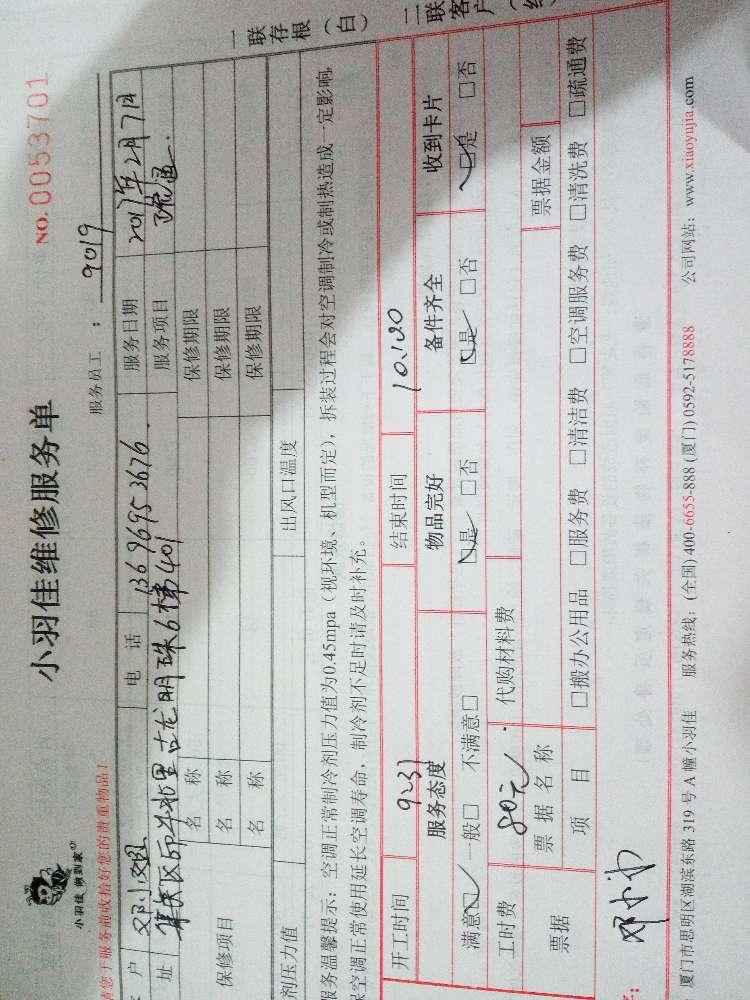 一联存根（白） 二联客户（红
小羽佳 做到家
小羽佳维修服务单
NO.0053701
请您于服务前收拾好您的贵重物品！
服务员工： 9019
户 邓小姐 电话 13696952676 服务日期 2017年2月7日
址 集美区 古龙明珠6梯401 服务项目 疏通
保修项目
名称 保修期限
名称 保修期限
名称 保修期限
剂压力值 出风口温度
服务温馨提示：空调正常制冷剂压力值为0.45mpa（视环境、机型而定），拆装过程会对空调制冷或制热造成一定影响，
空调正常使用延长空调寿命，制冷剂不足时请及时补充。
开工时间 9:31 结束时间 10:20
服务态度 物品完好 备件齐全 收到卡片
满意☑ 一般□ 不满意□ ☑是 □否 ☑是 □否 ☑是 □否
工时费 80元 代购材料费
票据 票据名称 票据金额
项目 □搬办公用品 □服务费 □清洁费 □空调服务费 □清洗费 □疏通费
厦门市思明区湖滨东路 319 号 A 幢小羽佳 服务热线：(全国) 400-6655-888 (厦门) 0592-5178888 公司网站：www.xiaoyujia.com